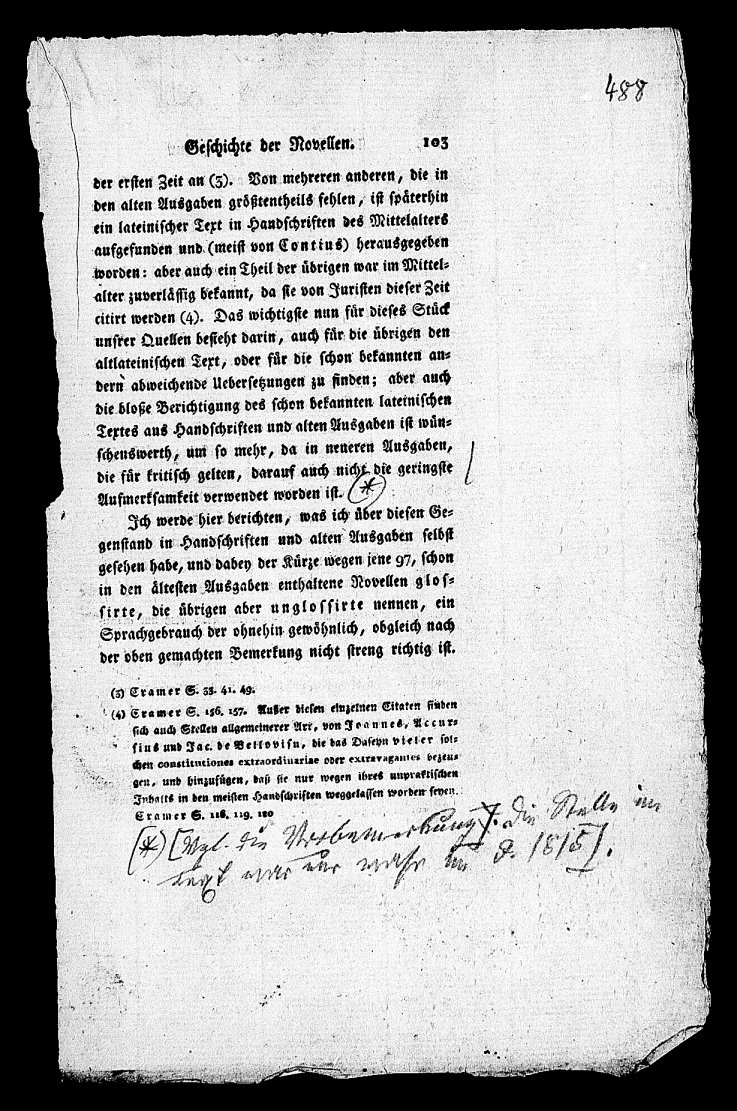 488
Geschichte der Novellen. 103
der ersten Zeit an (3). Von mehreren anderen, die in
den alten Ausgaben größtentheils fehlen, ist späterhin
ein lateinischer Text in Handschriften des Mittelalters
aufgefunden und (meist von Contius) herausgegeben
worden: aber auch ein Theil der übrigen war im Mittel-
alter zuverlässig bekannt, da sie von Juristen dieser Zeit
citirt werden (4). Das wichtigste nun für dieses Stück
unsrer Quellen besteht darin, auch für die übrigen den
altlateinischen Text, oder für die schon bekannten an-
dern abweichende Uebersetzungen zu finden; aber auch
die bloße Berichtigung des schon bekannten lateinischen
Textes aus Handschriften und alten Ausgaben ist wün-
schenswerth, um so mehr, da in neueren Ausgaben,
die für kritisch gelten, darauf auch nicht die geringste
Aufmerksamkeit verwendet worden ist. (*)
Ich werde hier berichten, was ich über diesen Ge-
genstand in Handschriften und alten Ausgaben selbst
gesehen habe, und dabey der Kürze wegen jene 97, schon
in den ältesten Ausgaben enthaltene Novellen glos-
sirte, die übrigen aber unglossirte nennen, ein
Sprachgebrauch der ohnehin gewöhnlich, obgleich nach
der oben gemachten Bemerkung nicht streng richtig ist.
(3) Cramer S. 33. 41. 49.
(4) Cramer S. 156. 157. Außer diesen einzelnen Citaten finden
sich auch Stellen allgemeinerer Art, von Joannes, Accur-
sius und Jac. de Bellovisu, die das Daseyn vieler sol-
chen constitutiones extraordinariae oder extravagantes bezeu-
gen, und hinzufügen, daß sie nur wegen ihres unpraktischen
Inhalts in den meisten Handschriften weggelassen worden seyen.
Cramer S. 118. 119. 120
(*) [Vgl. die Vorbemerkung]. Die Stelle im
Text war nur wahr im J. 1815].